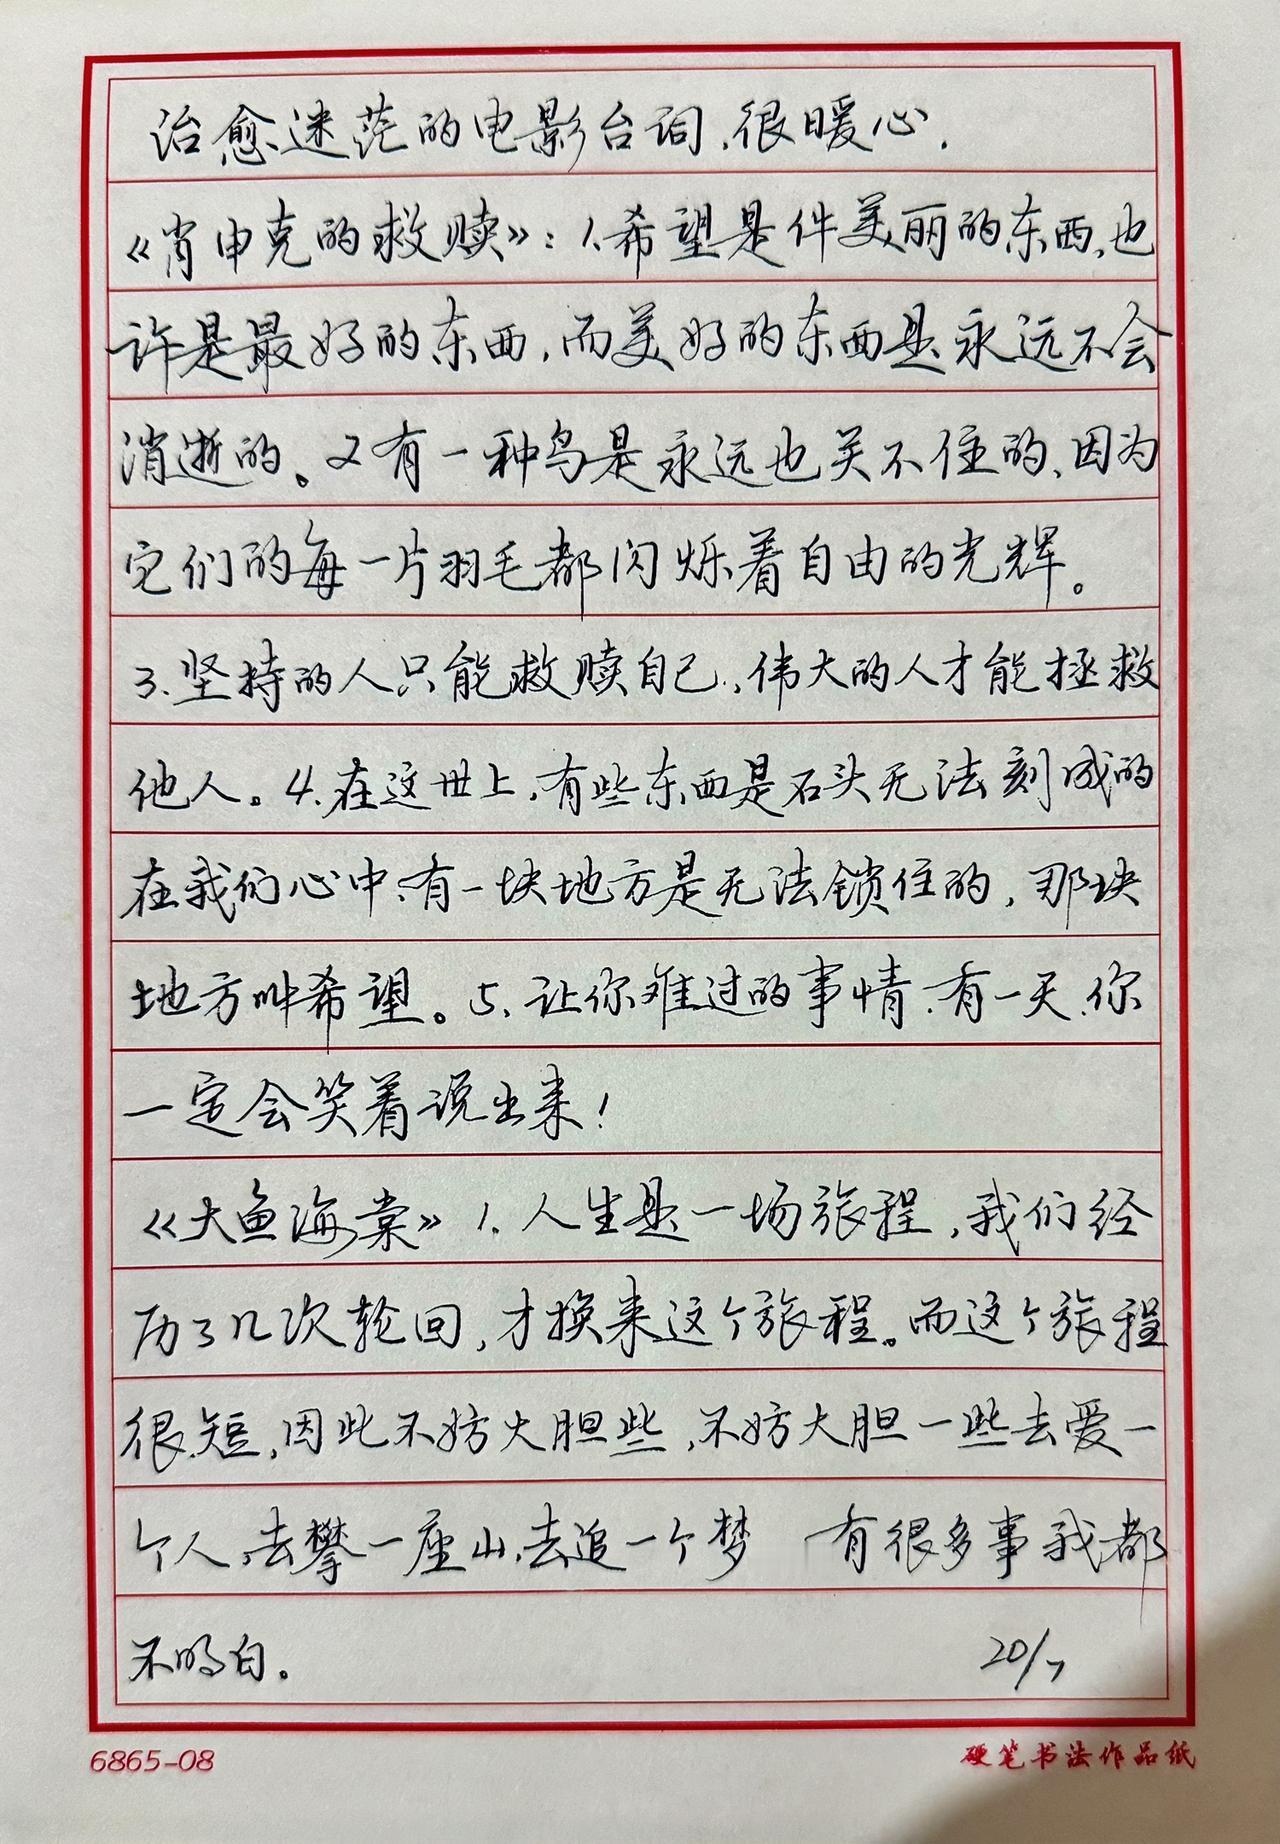 治愈迷茫的电影台词,很暖心.
《肖申克的救赎》:1.希望是件美丽的东西,也
许是最好的东西,而美好的东西是永远不会
消逝的。2有一种鸟是永远也关不住的、因为
它们的每一片羽毛都闪烁着自由的光辉。
3.坚持的人只能救赎自己.,伟大的人才能拯救
他人。4.在这世上,有些东西是石头无法刻成的
在我们心中,有一块地方是无法锁住的,那块
地方叫希望。5、让你难过的事情.有一天.你
一定会笑着说出来!
《大鱼海棠》1.人生是一场旅程,我们经
历了几次轮回,才换来这个旅程。而这个旅程
很短,因此不妨大胆些,不妨大胆一些去爱一
个人,去攀一座山,去追一个梦 有很多事我都
不明白。 20/7
6865-08 硬笔书法作品纸